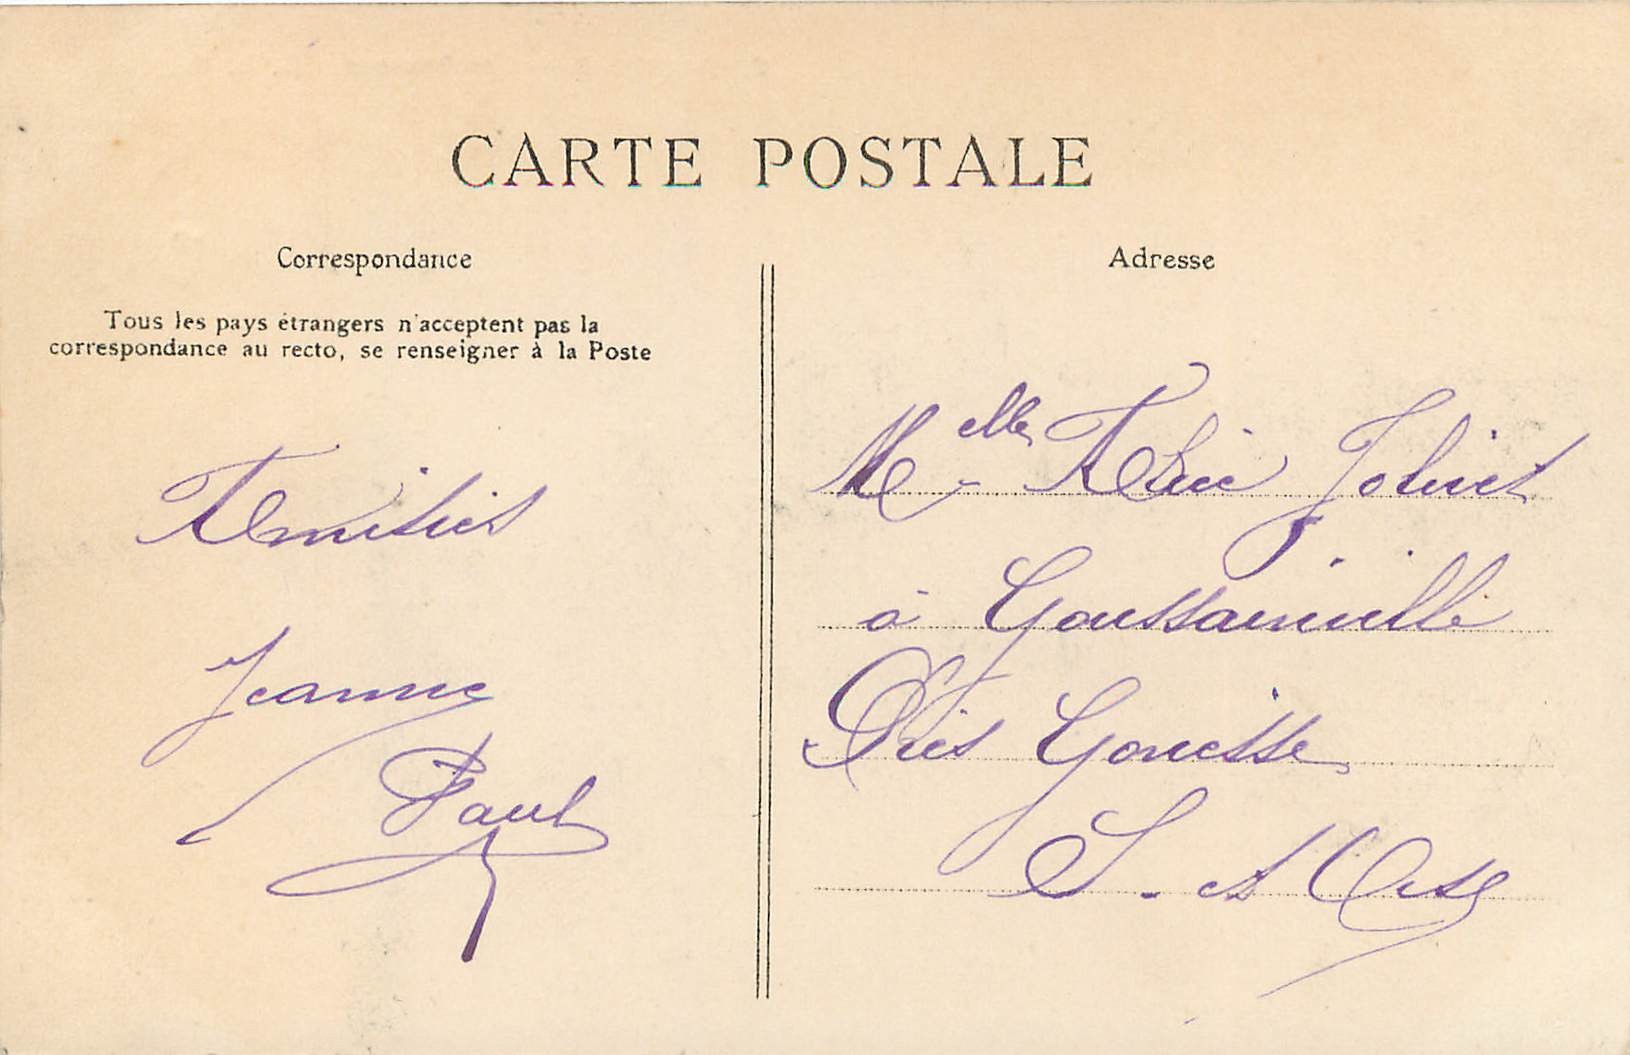 CARTE POSTALE
Correspondance
Tous les pays étrangers n'acceptent pas la
correspondance au recto, se renseigner à la Poste
Amitiés
Jeanne
Paul
Adresse
Melle Jolivet
à Goussainville
Près Gonesse
S. et Oise